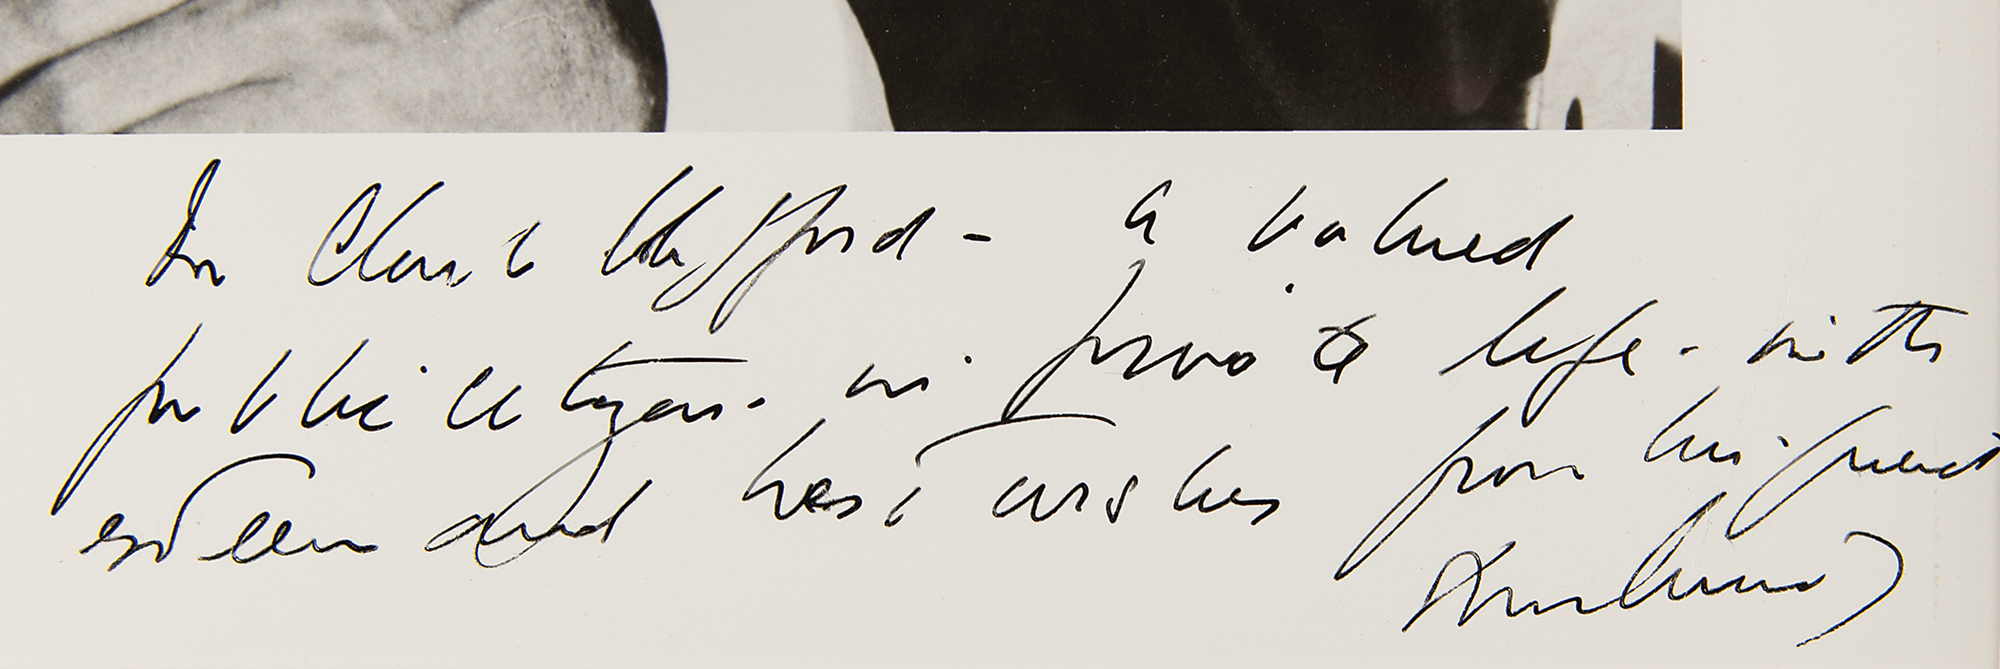 For Clark Clifford - a valued
public citizen - in private life - with
esteem and best wishes from his friend